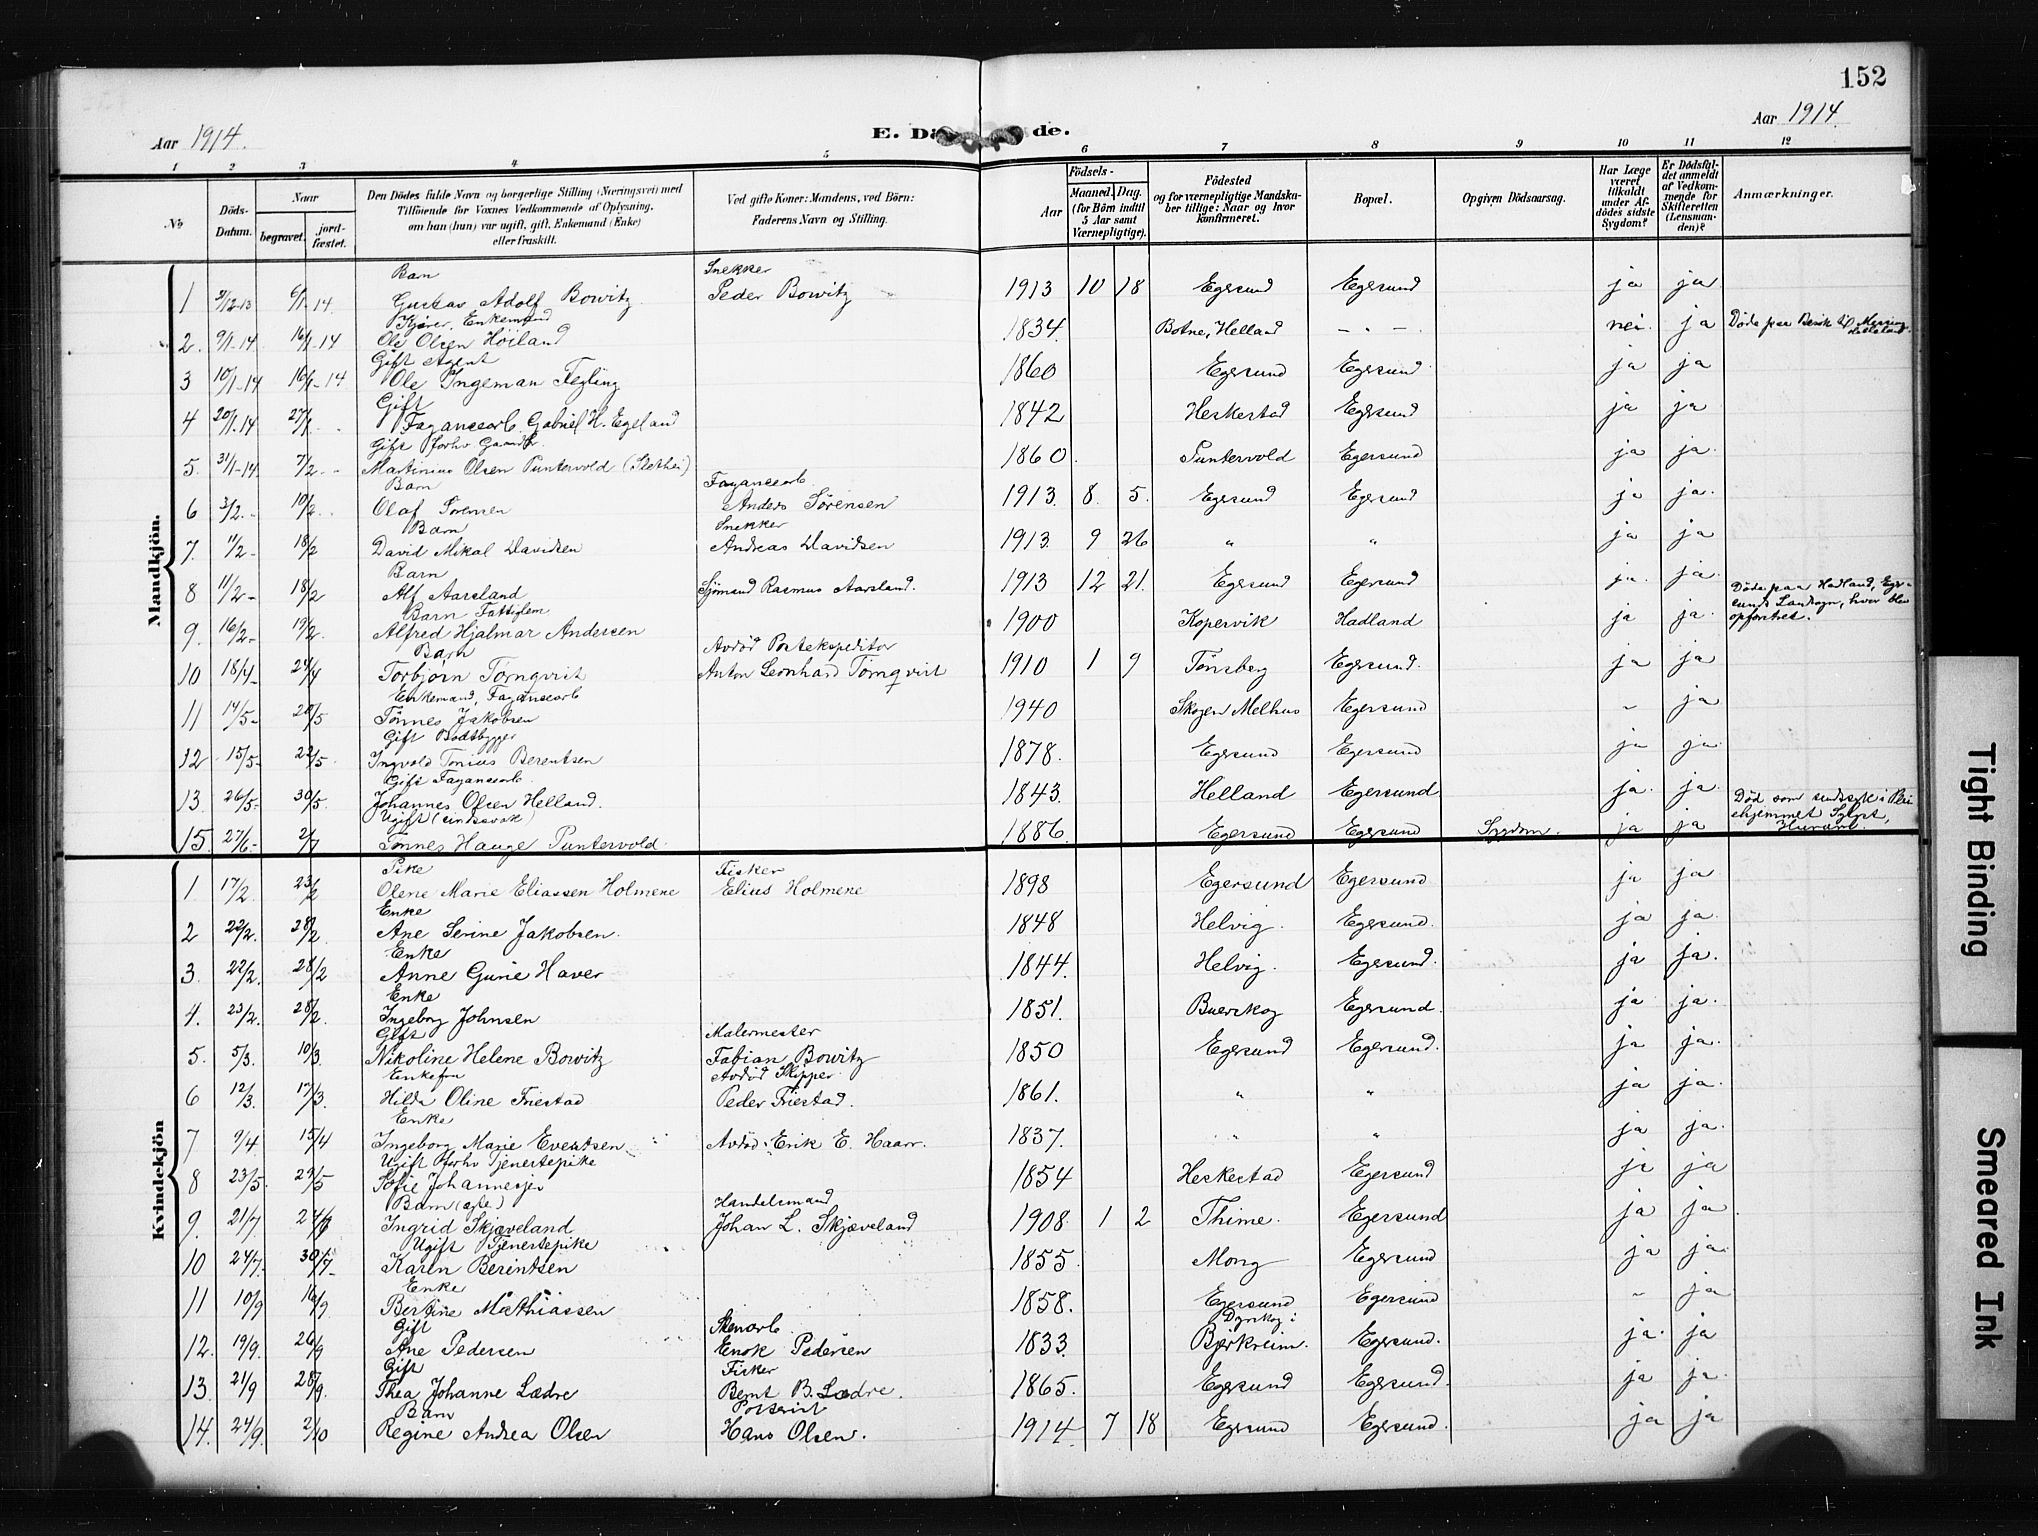 152
Aar 1914.
E. Dö de.
Aar 1914.
1 2 3 4 5 6 7 8 9 10 11 12
No
Döds-Datum.
Naar
begravet.
jord-fæstet.
Den Dödes fulde Navn og borgerlige Stilling (Næringsvei) med
Tilföiende for Voxnes Vedkommende af Oplysning,
om han (hun) var ugift, gift, Enkemand (Enke)
eller fraskilt.
Ved gifte Koner: Mandens, ved Börn:
Faderens Navn og Stilling.
Födsels-
Aar
Maaned. Dag.
(for Børn indtil
5 Aar samt
Værnepligtige).
Födested
og for værnepligtige Mandska-
ber tillige: Naar og hvor
konfirmeret.
Bopæl.
Opgiven Dödsaarsag.
Har Læge
været
tilkaldt
under Af-
dödes sidste
Sygdom?
Er Dödsfal-
det anmeldt
af Vedkom-
mende for
Skifteretten
(Lensman-
den)?
Anmærkninger.
Mandkjön.
Barn Snekker
1 6/1-14 Gustav Adolf Bowitz Peder Bowitz 1913 10 18 Egersund Egersund ja ja
Kjører, Enkemand
2. 9/1-14 16/1-14 Ole Olsen Höiland 1834. Botne, Helland - - - nei. ja Døde paa Besøk
Gift Agent
3 10/1-14 16/1-14 Ole Ingeman Fegling 1860 Egersund Egersund ja ja
Gift
4 20/1-14 27/1 Fayancearb. Gabriel H. Egeland 1842 Heskestad Egersund ja ja
Gift forhv Gaardbr.
5. 31/1-14 7/2 - - Martinius Olsen Puntervold 1860. Puntervold Egersund ja ja.
Barn Fayancearb.
6 3/2 - 10/2 Olaf Sörensen Anders Sørensen 1913. 8. 5. Egersund Egersund ja ja.
Barn Snekker
7. 11/2 - 18/2 David Mikal Davidsen Andreas Davidsen 1913. 9 26 " " ja ja
Barn
8 11/2 - 18/2 Alf Aarsland Sjömand Rasmus Aarsland. 1913 12 21. Egersund Egersund ja. ja. Døde paa Hadland, Eger-
sunds Landsogn, hvor blev
opfostret.
Barn Fattiglem
9. 16/2 - 19/2. Alfred Hjalmar Andersen 1900 Kopervik Hadland ja ja.
Barn Avdöd Postekspeditør
10 18/4 - 24/4 Torbjørn Tørnqvist Anton Leonhard Tørnqvist 1910 1 9 Tønsberg Egersund. ja ja
Enkemand, Fayancearb
11 14/5 - 20/5 Tønnes Jakobsen 1940 Skogen Melhus Egersund - ja
Gift Baadbygger
12 15/5 - 22/5 Ingvald Tonius Berentsen 1878. Egersund Egersund ja ja.
Gift Fayancearb.
13 26/5 - 30/5 Johannes Olsen Helland. 1843. Helland Egersund. ja. ja.
Ugift (sindssvak)
15. 27/6 - 2/7 Tønnes Hauge Puntervold. 1886. Egersund Egersund Sygdom. ja ja Død som sindssyk i
Kvindekjön
Pike Fisker
1 17/2. 23/2 Olene Marie Eliassen Holmene Elius Holmene 1898 Egersund Egersund ja ja
Enke
2 22/2. 28/2 Ane Serine Jakobsen. 1848 Helvig. Egersund. ja ja.
Enke
3. 22/2. 28/2 Anne Gurie Haver 1844. Helvig. Egersund. ja ja.
Enke
4. 23/2. 28/2. Ingeborg Johnsen 1851. Egersund. ja ja.
Gift Malermester
5. 5/3. 10/3 Nikoline Helene Bowitz Fabian Bowitz 1850 Egersund Egersund. ja ja.
Enkefru Avdöd Skipper
6 12/3. 17/3. Hilda Oline Friestad Peder Friestad. 1861. " " ja ja.
Enke
7 9/4. 15/4 Ingeborg Marie Evertsen Avdöd Erik E. Haarr. 1837. " " ja ja.
Ugift forhv Tjenestepike
8 23/5. 29/5 Sofie Johannesen 1854 Heskestad Egersund ja ja
Barn (ægte) Handelsmand
9. 21/7. Ingrid Skjæveland Johan L. Skjæveland 1908. 1 2 Thime. Egersund ja ja.
Ugift Tjenestepike
10 24/7. 30/7 Karen Berentsen 1855. Mong Egersund ja ja.
Enke
11 10/9 16/9 Bertine Mathiassen 1858. Egersund Egersund - ja
Gift
12. 19/9. 26/9 Ane Pedersen Enok Pedersen 1833. Dyrskog i
Bjerkreim. Egersund. ja. ja
Gift Fisker
13. 21/9 28/9. Thea Johanne Lædre Bernt B. Lædre. 1865. Egersund Egersund. ja ja.
Barn
14. 24/9. 2/10 Regine Andrea Olsen Hans Olsen. 1914. 7 18 Egersund Egersund. ja ja
Tight Binding
Smeared Ink